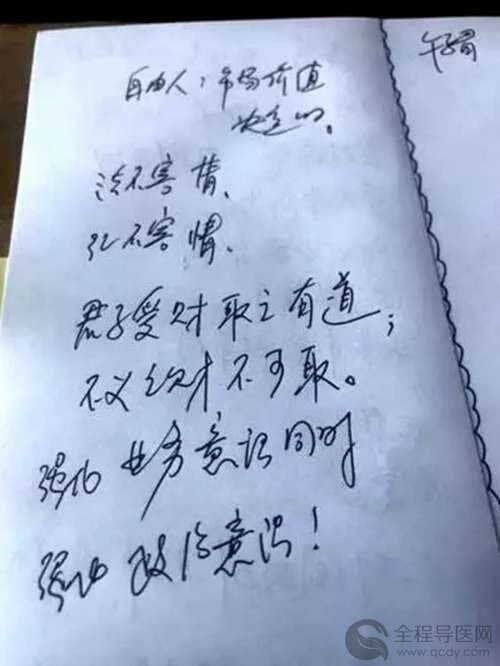 自由人：市场价值
决定的。
法不害情、
礼不害情、
君子爱财取之有道；
不义之财不可取。
强化业务意识同时
强化政治意识！
全程导医网
www.qcdy.com